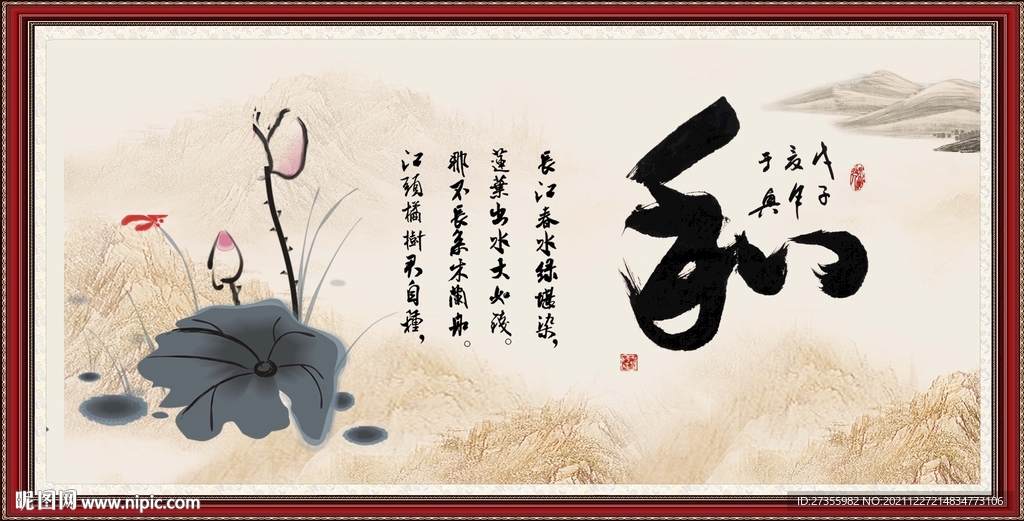 和
戊子
夏年
于奥
長江春水绿堪染,
蓮葉出水大如钱。
那不長系木蘭舟。
江頭橘樹君自種,
昵图网 www.nipic.com
ID:27355982 NO:20211227214834773106